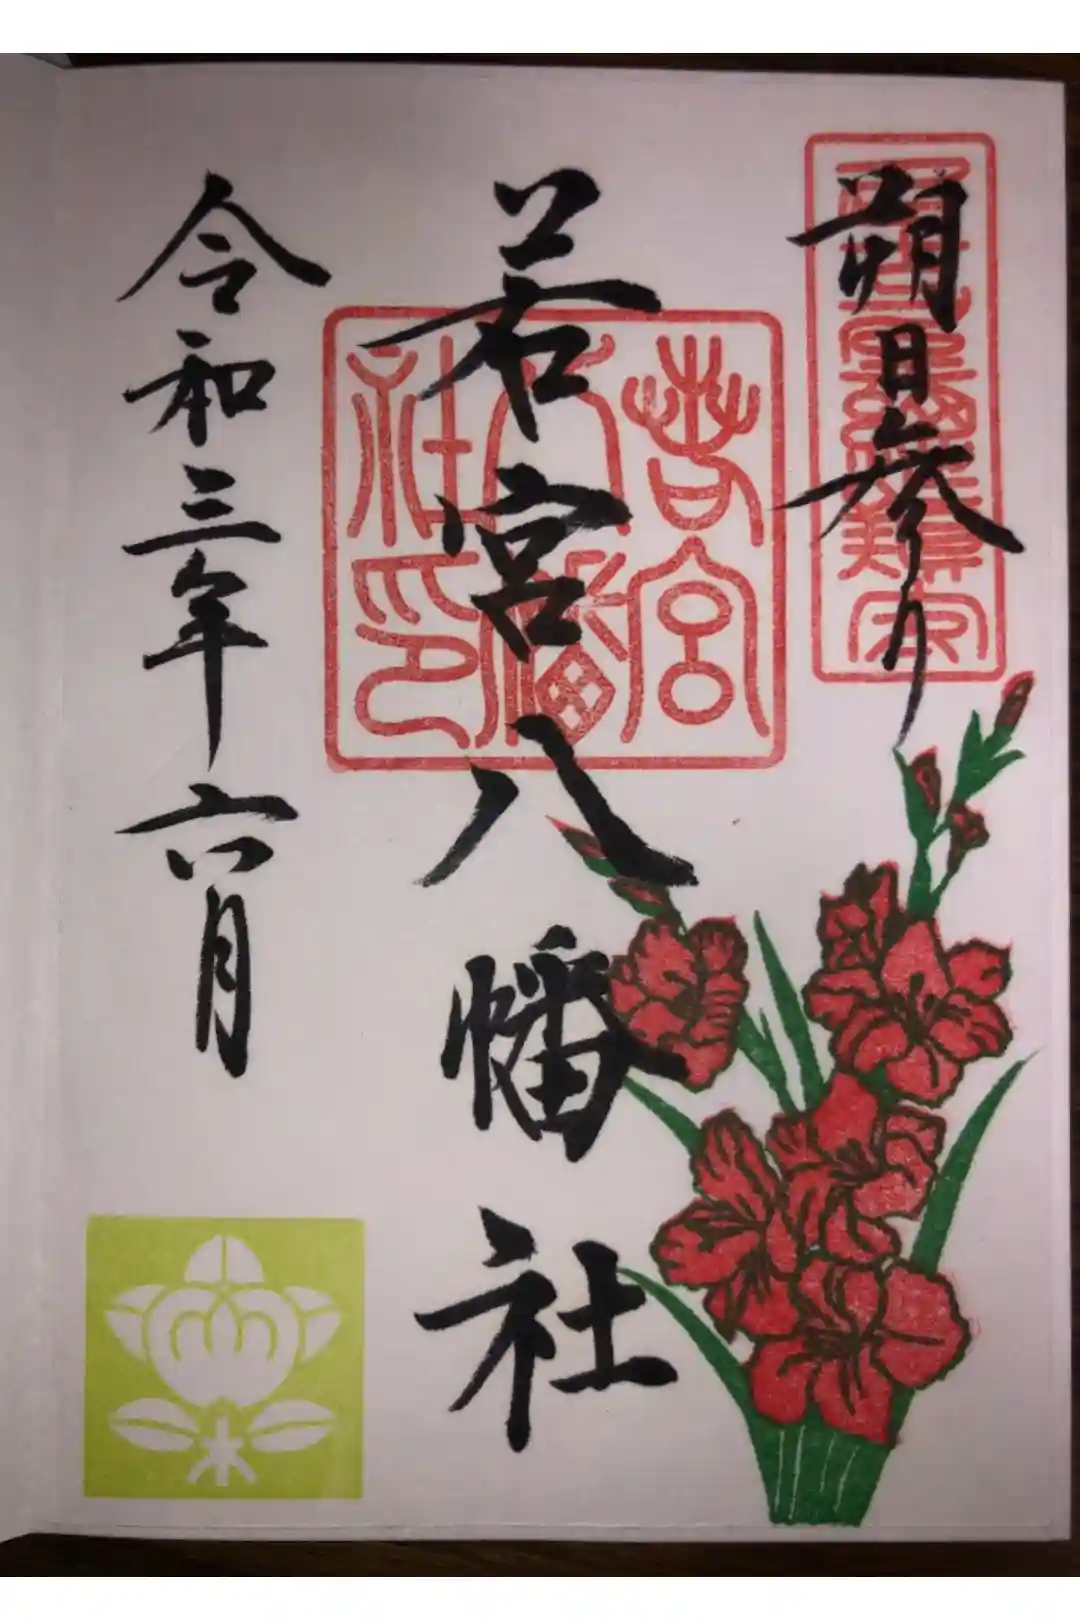 朔日参り
若宮八幡社
若宮八幡社印
令和三年六月